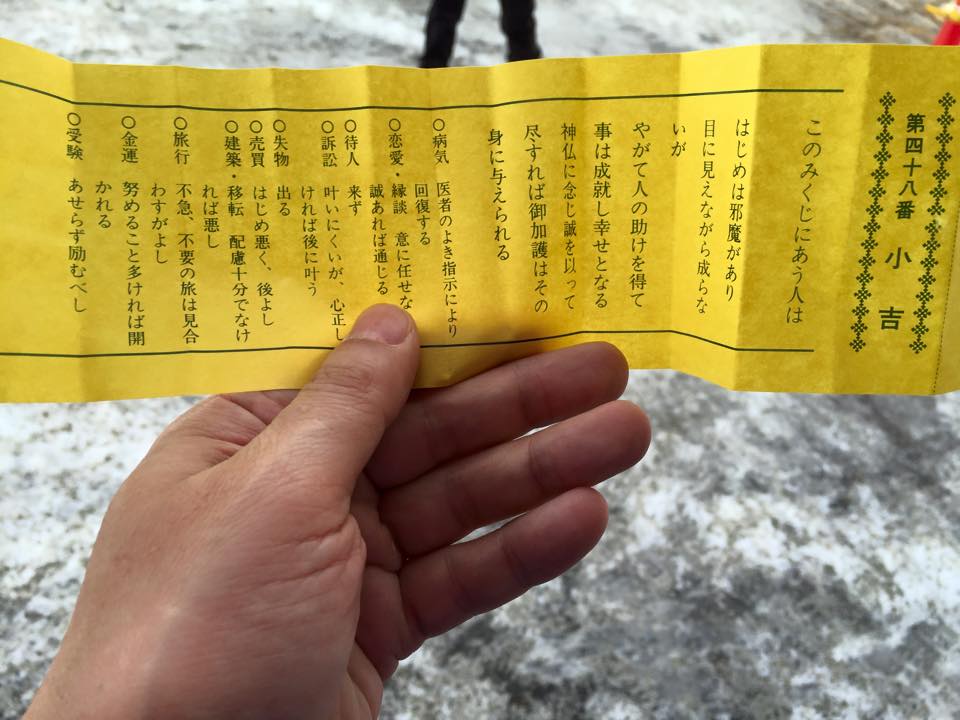 第四十八番 小吉
このみくじにあう人は
はじめは邪魔があり
目に見えながら成らな
いが
やがて人の助けを得て
事は成就し幸せとなる
神仏に念じ誠を以って
尽すれば御加護はその
身に与えられる
○病気 医者のよき指示により
回復する
○恋愛・縁談 意に任せな
誠あれば通じる
○待人 来ず
○訴訟 叶いにくいが、心正し
ければ後に叶う
○失物 出る
○売買 はじめ悪く、後よし
○建築・移転 配慮十分でなけ
れば悪し
○旅行 不急、不要の旅は見合
わすがよし
○金運 努めること多ければ開
かれる
○受験 あせらず励むべし